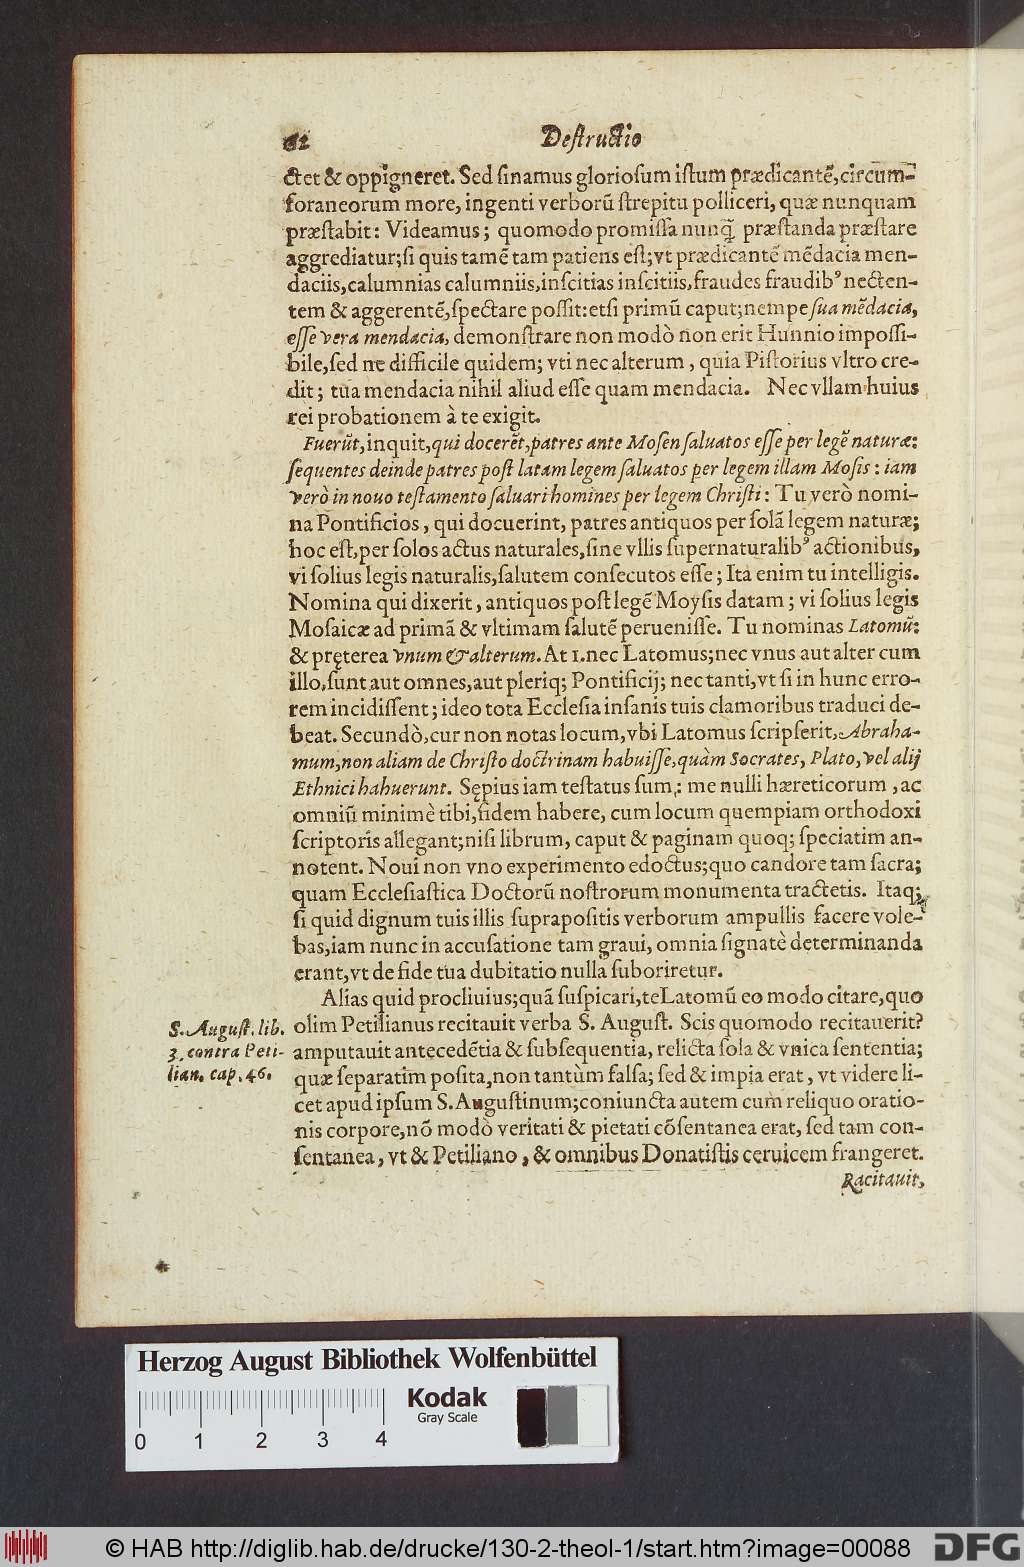 62 Destructio
ctet & oppigneret. Sed sinamus gloriosum istum prædicantē, circum-
foraneorum more, ingenti verborū strepitu polliceri, quæ nunquam
præstabit: Videamus; quomodo promissa nunq̃ præstanda præstare
aggrediatur; si quis tamē tam patiens est; vt prædicantē mēdacia men-
daciis, calumnias calumniis, inscitias inscitiis, fraudes fraudibꝰ necten-
tem & aggerentē, spectare possit: etsi primū caput; nempe sua mēdacia,
esse vera mendacia, demonstrare non modò non erit Hunnio impossi-
bile, sed ne difficile quidem; vti nec alterum, quia Pistorius vltro cre-
dit; tua mendacia nihil aliud esse quam mendacia. Nec vllam huius
rei probationem à te exigit.
Fuerūt, inquit, qui docerēt, patres ante Mosen saluatos esse per legē naturæ:
sequentes deinde patres post latam legem saluatos per legem illam Mosis: iam
verò in nouo testamento saluari homines per legem Christi: Tu verò nomi-
na Pontificios, qui docuerint, patres antiquos per solā legem naturæ;
hoc est, per solos actus naturales, sine vllis supernaturalibꝰ actionibus,
vi solius legis naturalis, salutem consecutos esse; Ita enim tu intelligis.
Nomina qui dixerit, antiquos post legē Moysis datam; vi solius legis
Mosaicæ ad primā & vltimam salutē peruenisse. Tu nominas Latomū:
& pręterea vnum & alterum. At 1. nec Latomus; nec vnus aut alter cum
illo, sunt aut omnes, aut pleriq; Pontificij; nec tanti, vt si in hunc erro-
rem incidissent; ideo tota Ecclesia insanis tuis clamoribus traduci de-
beat. Secundò, cur non notas locum, vbi Latomus scripserit, Abraha-
mum, non aliam de Christo doctrinam habuisse, quàm Socrates, Plato, vel alij
Ethnici hahuerunt. Sępius iam testatus sum: me nulli hæreticorum, ac
omniū minimè tibi, fidem habere, cum locum quempiam orthodoxi
scriptoris allegant; nisi librum, caput & paginam quoq; speciatim an-
notent. Noui non vno experimento edoctus; quo candore tam sacra;
quam Ecclesiastica Doctorū nostrorum monumenta tractetis. Itaq;
si quid dignum tuis illis suprapositis verborum ampullis facere vole-
bas, iam nunc in accusatione tam graui, omnia signatè determinanda
erant, vt de fide tua dubitatio nulla suboriretur.
Alias quid procliuius; quā suspicari, te Latomū eo modo citare, quo
olim Petilianus recitauit verba S. August. Scis quomodo recitauerit?
amputauit antecedētia & subsequentia, relicta sola & vnica sententia;
quæ separatim posita, non tantùm falsa; sed & impia erat, vt videre li-
cet apud ipsum S. Augustinum; coniuncta autem cum reliquo oratio-
nis corpore, nō modò veritati & pietati cōsentanea erat, sed tam con-
sentanea, vt & Petiliano, & omnibus Donatistis ceruicem frangeret.
Racitauit,
S. August. lib.
3. contra Peti-
lian. cap. 46.
Herzog August Bibliothek Wolfenbüttel
Kodak
Gray Scale
0 1 2 3 4
© HAB http://diglib.hab.de/drucke/130-2-theol-1/start.htm?image=00088
DFG